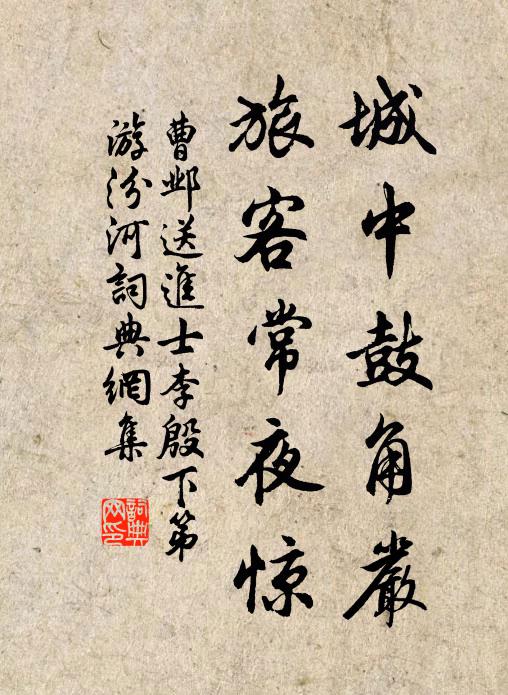 城中鼓角嚴
旅客常夜惊
曹邺送進士李殷下第
游汾河詞典網集
詞典网印